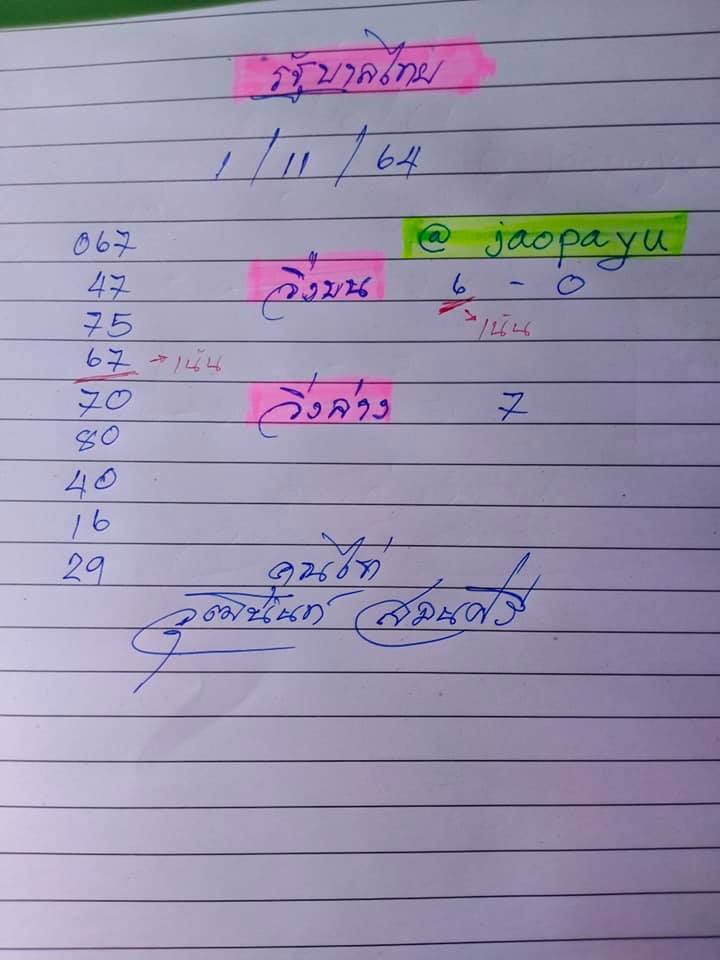 รัฐบาลไทย
1/11/64
067
@ jaopayu
47
วิ่งบน 6 - 0
75
→ เน้น
67 → เน้น
70
วิ่งล่าง 7
80
40
16
29
คุนไท่
วุฒินันท์ สมนศรี